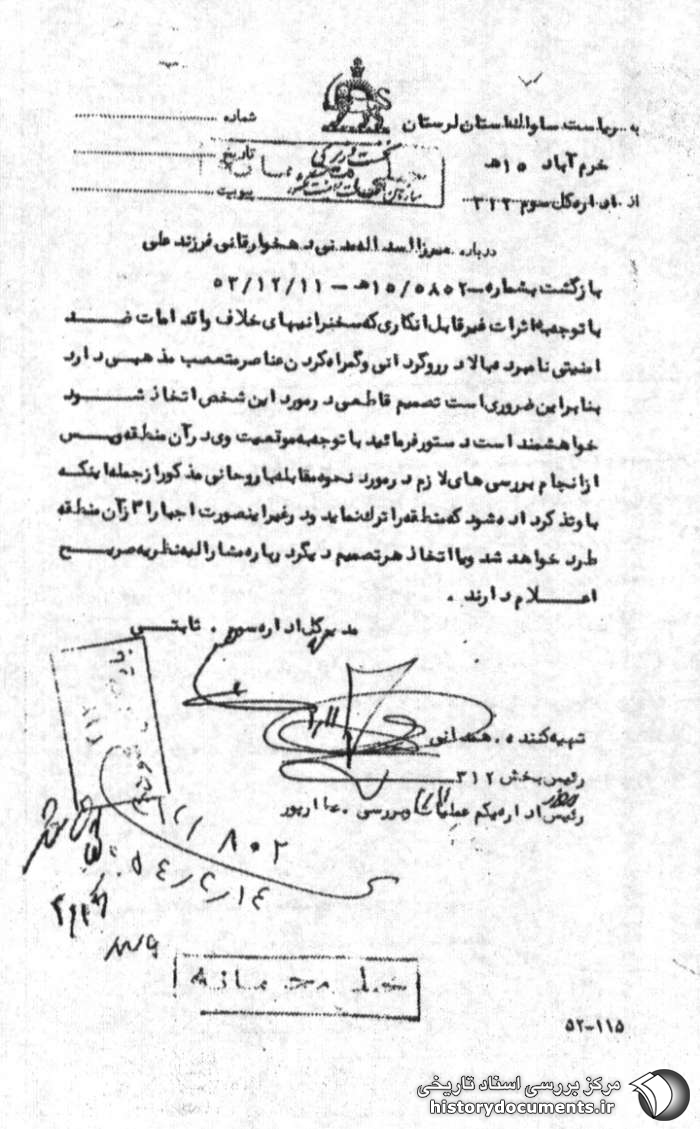 شماره
به ریاست ساواک استان لرستان
تاریخ
خرم آباد ۱۵ هـ
پیوست
از اداره کل سوم ۳۱۲
درباره میرزا اسداله مدنی دهخوارقانی فرزند علی
بازگشت بشماره ۱۵/۵۸۵۲ هـ - ۵۳/۱۲/۱۱
با توجه به اثرات غیر قابل انکاری که سخنرانیهای خلاف واقدامات ضد
امنیتی نامبرده بالا در روگردانی وگمراه کردن عناصر متعصب مذهبی دارد
بنابراین ضروری است تصمیم قاطعی در مورد این شخص اتخاذ شود
خواهشمند است دستور فرمائید با توجه به موقعیت وی در آن منطقه وپس
از انجام بررسی های لازم در مورد نحوه مقابله با روحانی مذکور از جمله اینکه
باو تذکر داده شود که منطقه را ترک نماید و در غیر اینصورت اجبارا از آن منطقه
طرد خواهد شد ویا اتخاذ هر تصمیم دیگر درباره مشارالیه نظریه صریح
اعلام دارند .
مدیر کل اداره سوم . ثابتی
تهیه کننده . همدانی
رئیس بخش ۳۱۲
رئیس اداره یکم عملیات وبررسی . عطارپور
۸۰۲
۵۴/۲/۱۴
خیلی محرمانه
۵۲-۱۱۵
مرکز بررسی اسناد تاریخی
historydocuments.ir